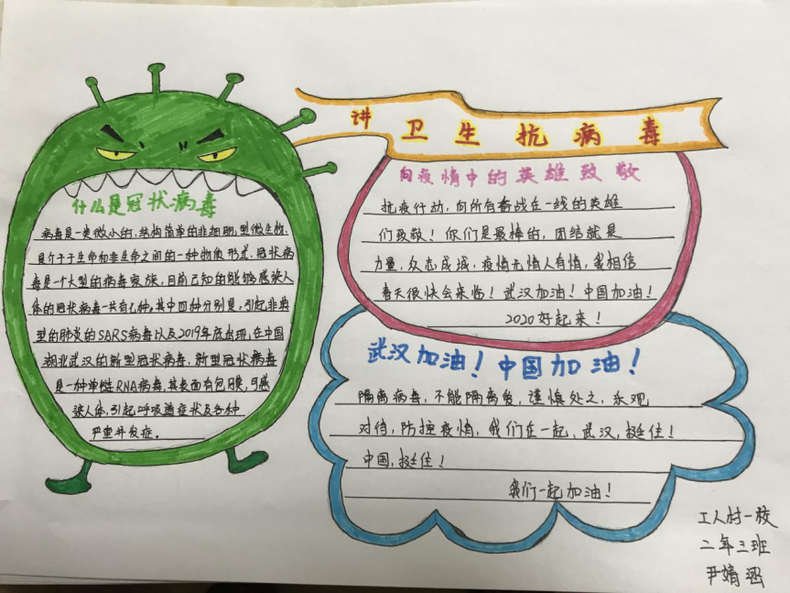 讲卫生抗病毒
什么是冠状病毒
病毒是一类微小的,结构简单的非细胞,型微生物.
是介于于生命和非生命之间的一种物质形式.冠状病
毒是一个大型的病毒家族,目前已知的能够感染人
体的冠状病毒一共有七种,其中四种分别是,引起非典
型的肺炎的SARS病毒以及2019年底出现,在中国
湖北武汉的新型冠状病毒.新型冠状病毒
是一种单链RNA病毒,其表面有包膜,可感
染人体,引起呼吸道症状及各种
严重并发症.
向疫情中的英雄致敬
抗疫行动,向所有奋战在一线的英雄
们致敬!你们是最棒的,团结就是
力量,众志成城,疫情无情人有情,我相信
春天很快会来临!武汉加油!中国加油!
2020好起来!
武汉加油!中国加油!
隔离病毒,不能隔离爱,谨慎处之,乐观
对待,防控疫情,我们在一起,武汉,挺住!
中国,挺住!
我们一起加油!
工人村一校
二年三班
尹婧涵